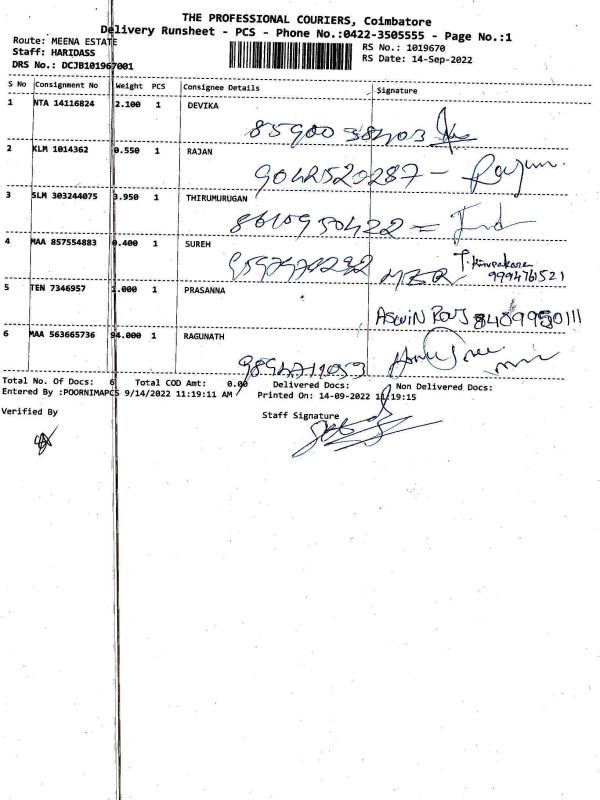 THE PROFESSIONAL COURIERS, Coimbatore
Delivery Runsheet - PCS - Phone No.:0422-3505555 - Page No.:1
Route: MEENA ESTATE
RS No.: 1019670
Staff: HARIDASS
RS Date: 14-Sep-2022
DRS No.: DCJB101967001
S No Consignment No Weight PCS Consignee Details Signature
1 NTA 14116824 2.100 1 DEVIKA
8590038403
2 KLM 1014362 0.550 1 RAJAN
9042520287 - Rajan.
3 SLM 303244075 3.950 1 THIRUMURUGAN
8610950422 =
4 MAA 857554883 0.400 1 SUREH
9994761521
5 TEN 7346957 1.000 1 PRASANNA
ASWIN 8409950111
6 MAA 563665736 94.000 1 RAGUNATH
Total No. Of Docs: 6 Total COD Amt: 0.00 Delivered Docs: Non Delivered Docs:
Entered By :POORNIMAPCS 9/14/2022 11:19:11 AM Printed On: 14-09-2022 11:19:15
Verified By Staff Signature